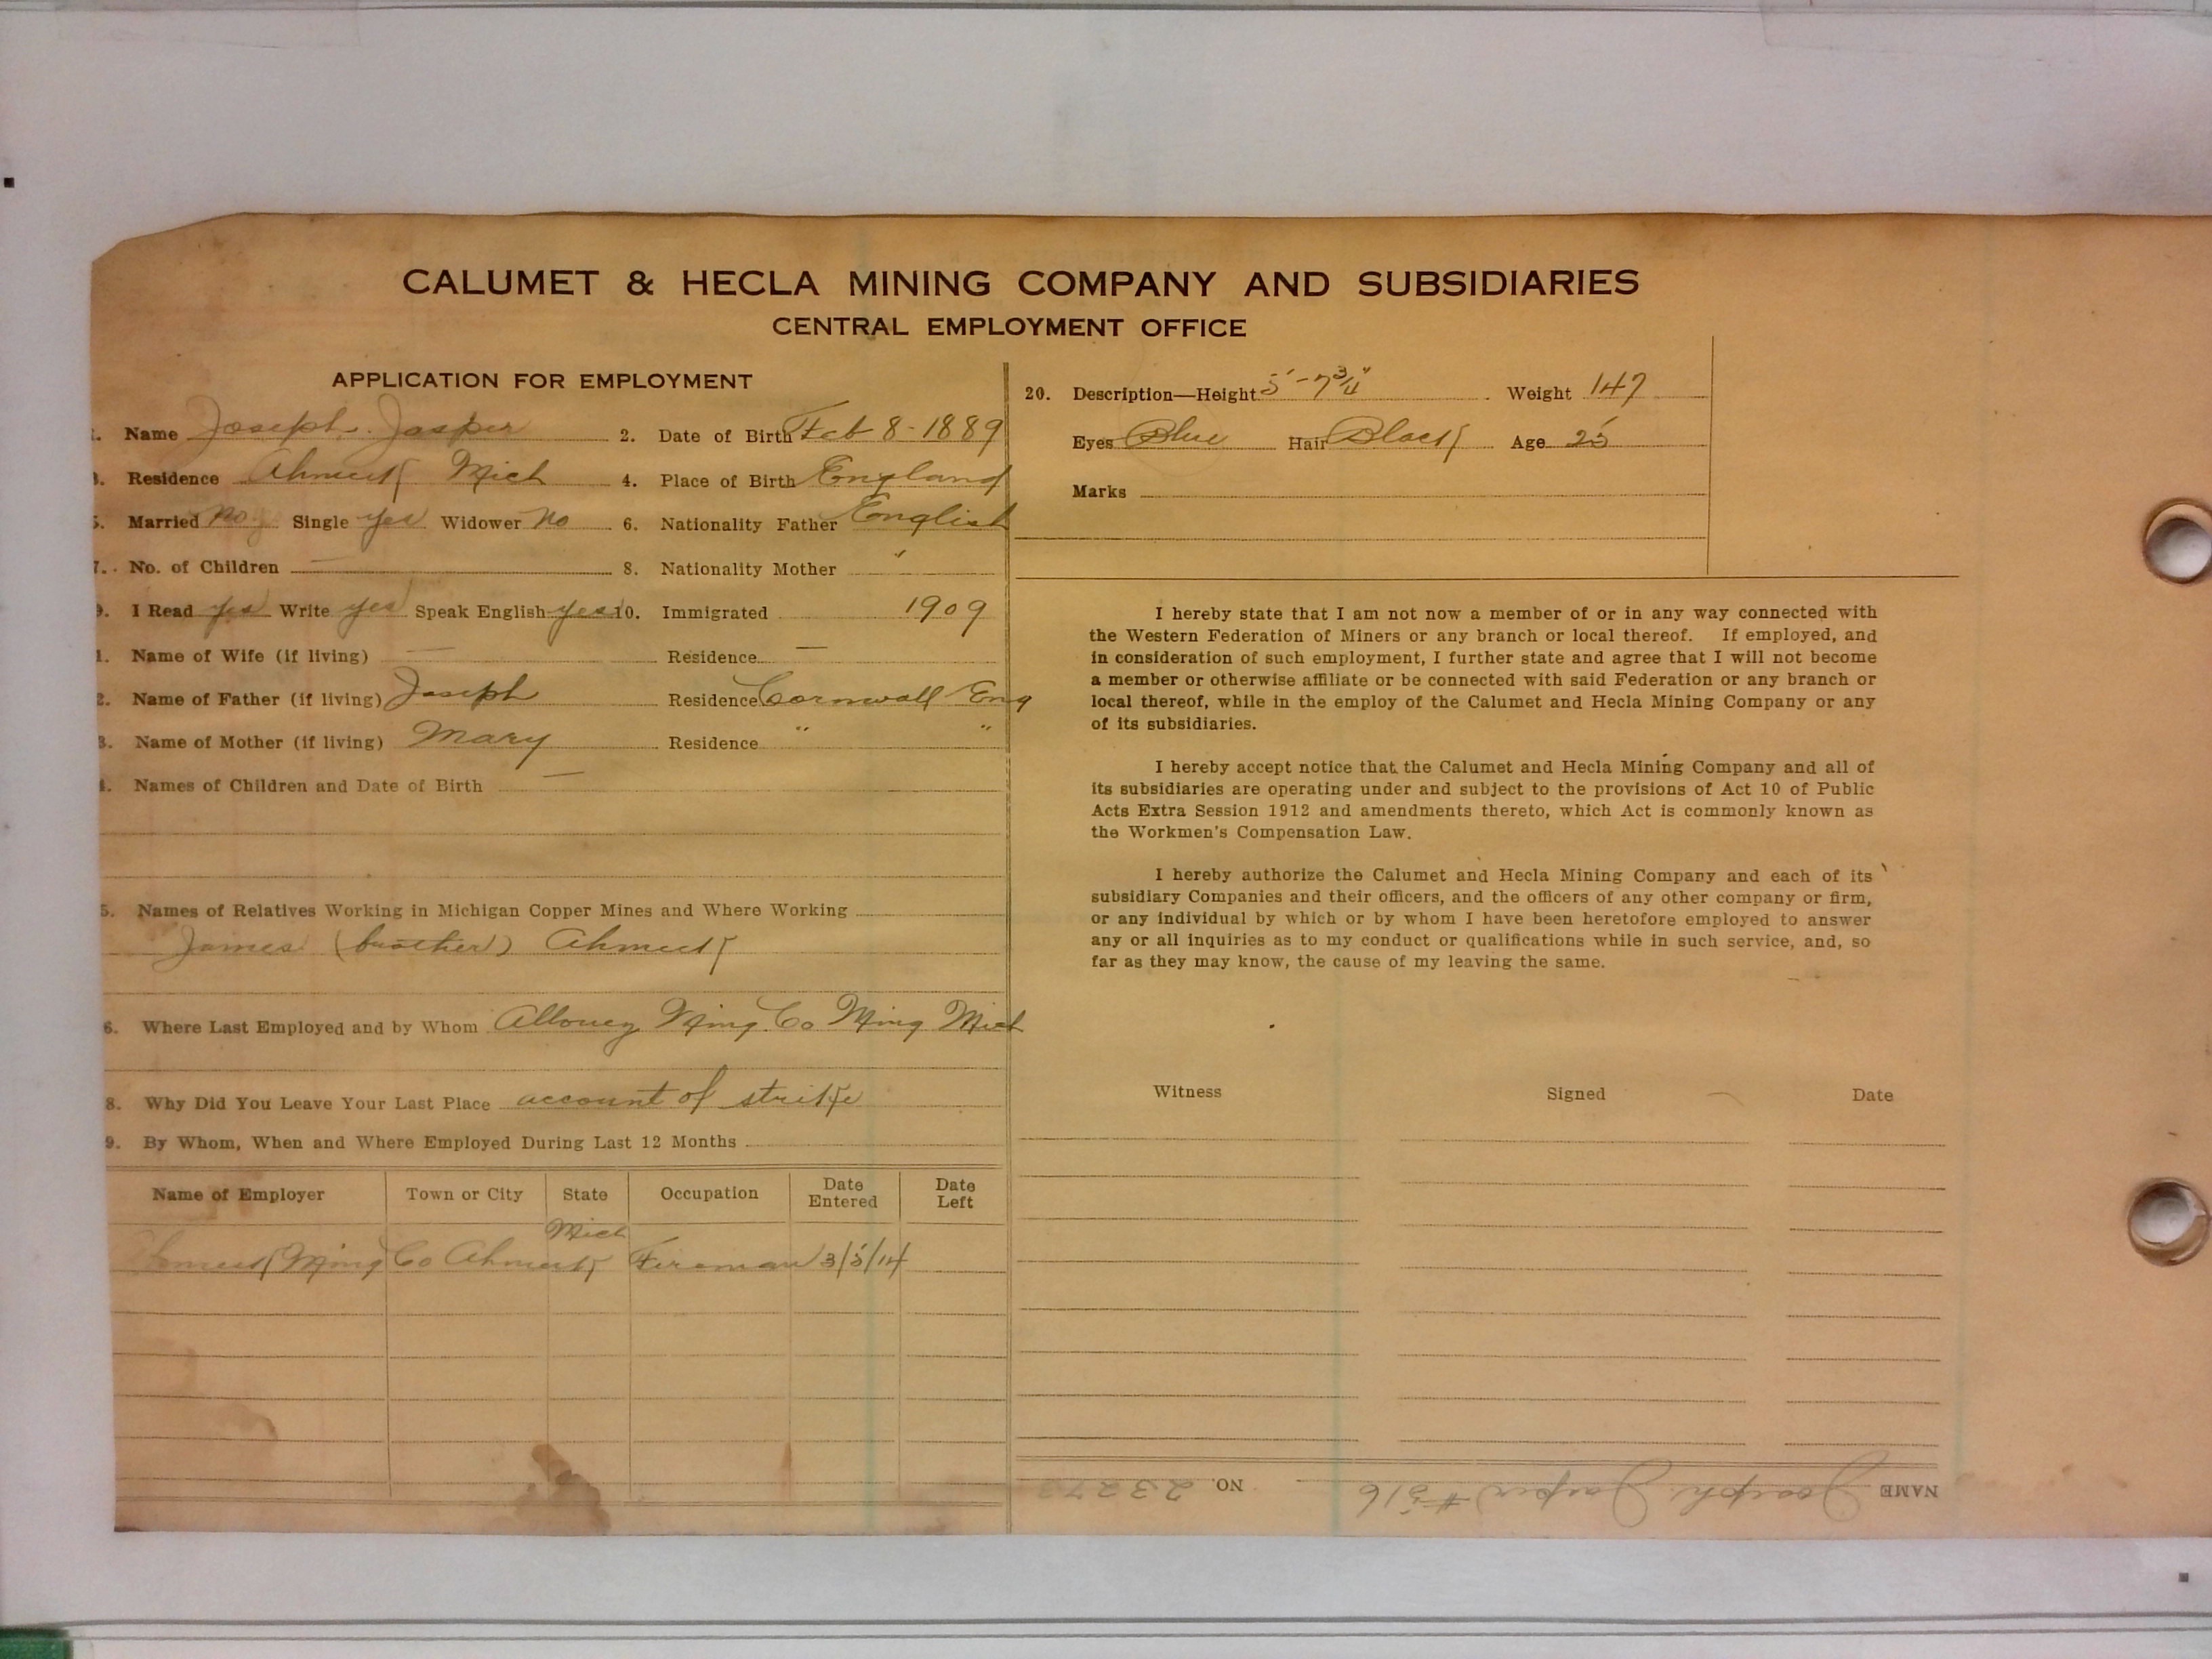 CALUMET & HECLA MINING COMPANY AND SUBSIDIARIES
CENTRAL EMPLOYMENT OFFICE
APPLICATION FOR EMPLOYMENT
Name Joseph Jasper 2. Date of Birth Feb 8-1889
Residence Ahmeek Mich 4. Place of Birth England
Married no Single yes Widower no 6. Nationality Father English
7. No. of Children — 8. Nationality Mother "
9. I Read yes Write yes Speak English yes 10. Immigrated 1909
1. Name of Wife (if living) — Residence —
2. Name of Father (if living) Joseph Residence Cornwall Eng
3. Name of Mother (if living) Mary Residence " "
4. Names of Children and Date of Birth —
5. Names of Relatives Working in Michigan Copper Mines and Where Working
James (brother) Ahmeek
6. Where Last Employed and by Whom Allouez Ming Co Ming Mich
8. Why Did You Leave Your Last Place account of strike
9. By Whom, When and Where Employed During Last 12 Months
Name of Employer Town or City State Occupation Date Entered Date Left
Mich
Ahmeek Ming Co Ahmeek Fireman 3/5/14
20. Description—Height 5'-7 3/4" Weight 147
Eyes Blue Hair Black Age 25
Marks
I hereby state that I am not now a member of or in any way connected with
the Western Federation of Miners or any branch or local thereof. If employed, and
in consideration of such employment, I further state and agree that I will not become
a member or otherwise affiliate or be connected with said Federation or any branch or
local thereof, while in the employ of the Calumet and Hecla Mining Company or any
of its subsidiaries.
I hereby accept notice that the Calumet and Hecla Mining Company and all of
its subsidiaries are operating under and subject to the provisions of Act 10 of Public
Acts Extra Session 1912 and amendments thereto, which Act is commonly known as
the Workmen's Compensation Law.
I hereby authorize the Calumet and Hecla Mining Company and each of its
subsidiary Companies and their officers, and the officers of any other company or firm,
or any individual by which or by whom I have been heretofore employed to answer
any or all inquiries as to my conduct or qualifications while in such service, and, so
far as they may know, the cause of my leaving the same.
Witness Signed Date
NAME Joseph Jasper #516 NO.